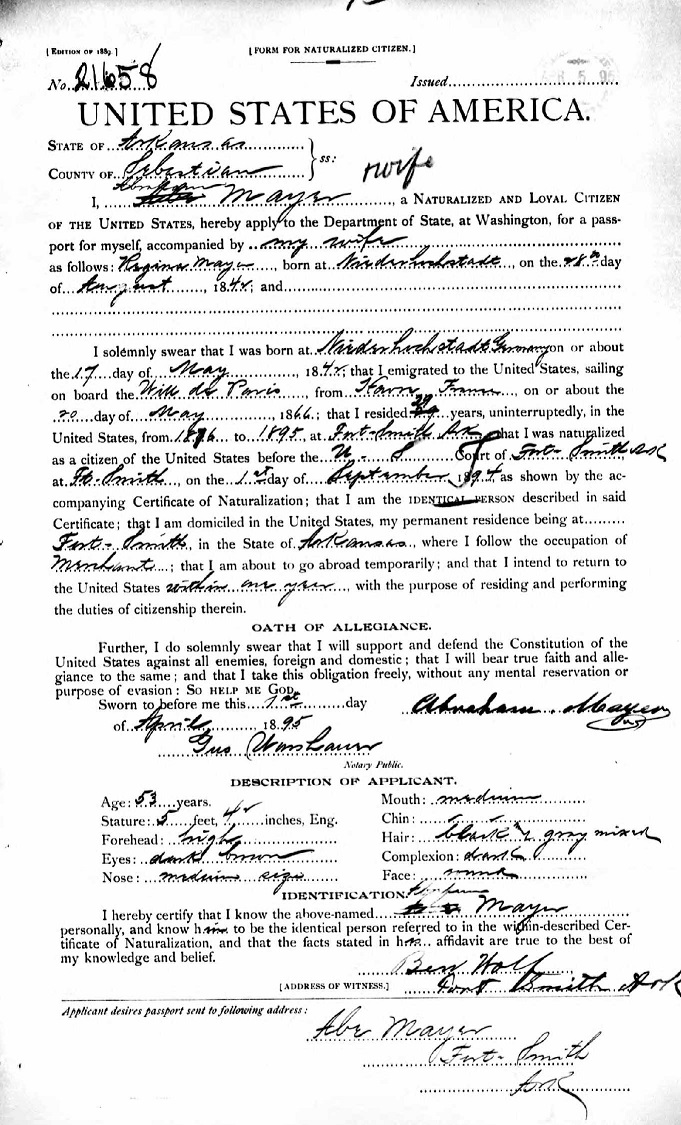 [EDITION OF 1889.]
[FORM FOR NATURALIZED CITIZEN.]
No. 21658
Issued
5 95
UNITED STATES OF AMERICA.
STATE OF Arkansas
COUNTY OF Sebastian } ss:
& wife
I, Abraham Mayer, a NATURALIZED AND LOYAL CITIZEN
OF THE UNITED STATES, hereby apply to the Department of State, at Washington, for a pass-
port for myself, accompanied by my wife
as follows: Regina Mayer, born at Niederhochstadt, on the 28th day
of August, 1842; and
I solemnly swear that I was born at Niederhochstadt Germany on or about
the 17 day of May, 1842; that I emigrated to the United States, sailing
on board the Will de Paris, from Havre France, on or about the
20 day of May, 1866.; that I resided 29 years, uninterruptedly, in the
United States, from 1866 to 1895, at Fort-Smith Ark that I was naturalized
as a citizen of the United States before the U. S Court of Fort-Smith Ark
at Ft-Smith, on the 1st day of September 1894, as shown by the ac-
companying Certificate of Naturalization; that I am the IDENTICAL PERSON described in said
Certificate; that I am domiciled in the United States, my permanent residence being at
Fort-Smith, in the State of Arkansas, where I follow the occupation of
Merchant; that I am about to go abroad temporarily; and that I intend to return to
the United States within one year, with the purpose of residing and performing
the duties of citizenship therein.
OATH OF ALLEGIANCE.
Further, I do solemnly swear that I will support and defend the Constitution of the
United States against all enemies, foreign and domestic; that I will bear true faith and alle-
giance to the same; and that I take this obligation freely, without any mental reservation or
purpose of evasion: SO HELP ME GOD.
Sworn to before me this 1st day
Abraham Mayer
of April 1895
Gus
Notary Public.
DESCRIPTION OF APPLICANT.
Age: 53 years.
Mouth: medium
Stature: 5 feet, 4 inches, Eng.
Chin:
Forehead: high
Hair: black & gray mixed
Eyes: dark brown
Complexion: dark
Nose: medium size
Face:
IDENTIFICATION.
I hereby certify that I know the above-named Abraham Mayer
personally, and know him to be the identical person referred to in the within-described Cer-
tificate of Naturalization, and that the facts stated in his affidavit are true to the best of
my knowledge and belief.
Ben Wolf
[ADDRESS OF WITNESS.] Fort Smith Ark
Applicant desires passport sent to following address:
Abe Mayer
Fort-Smith
Ark